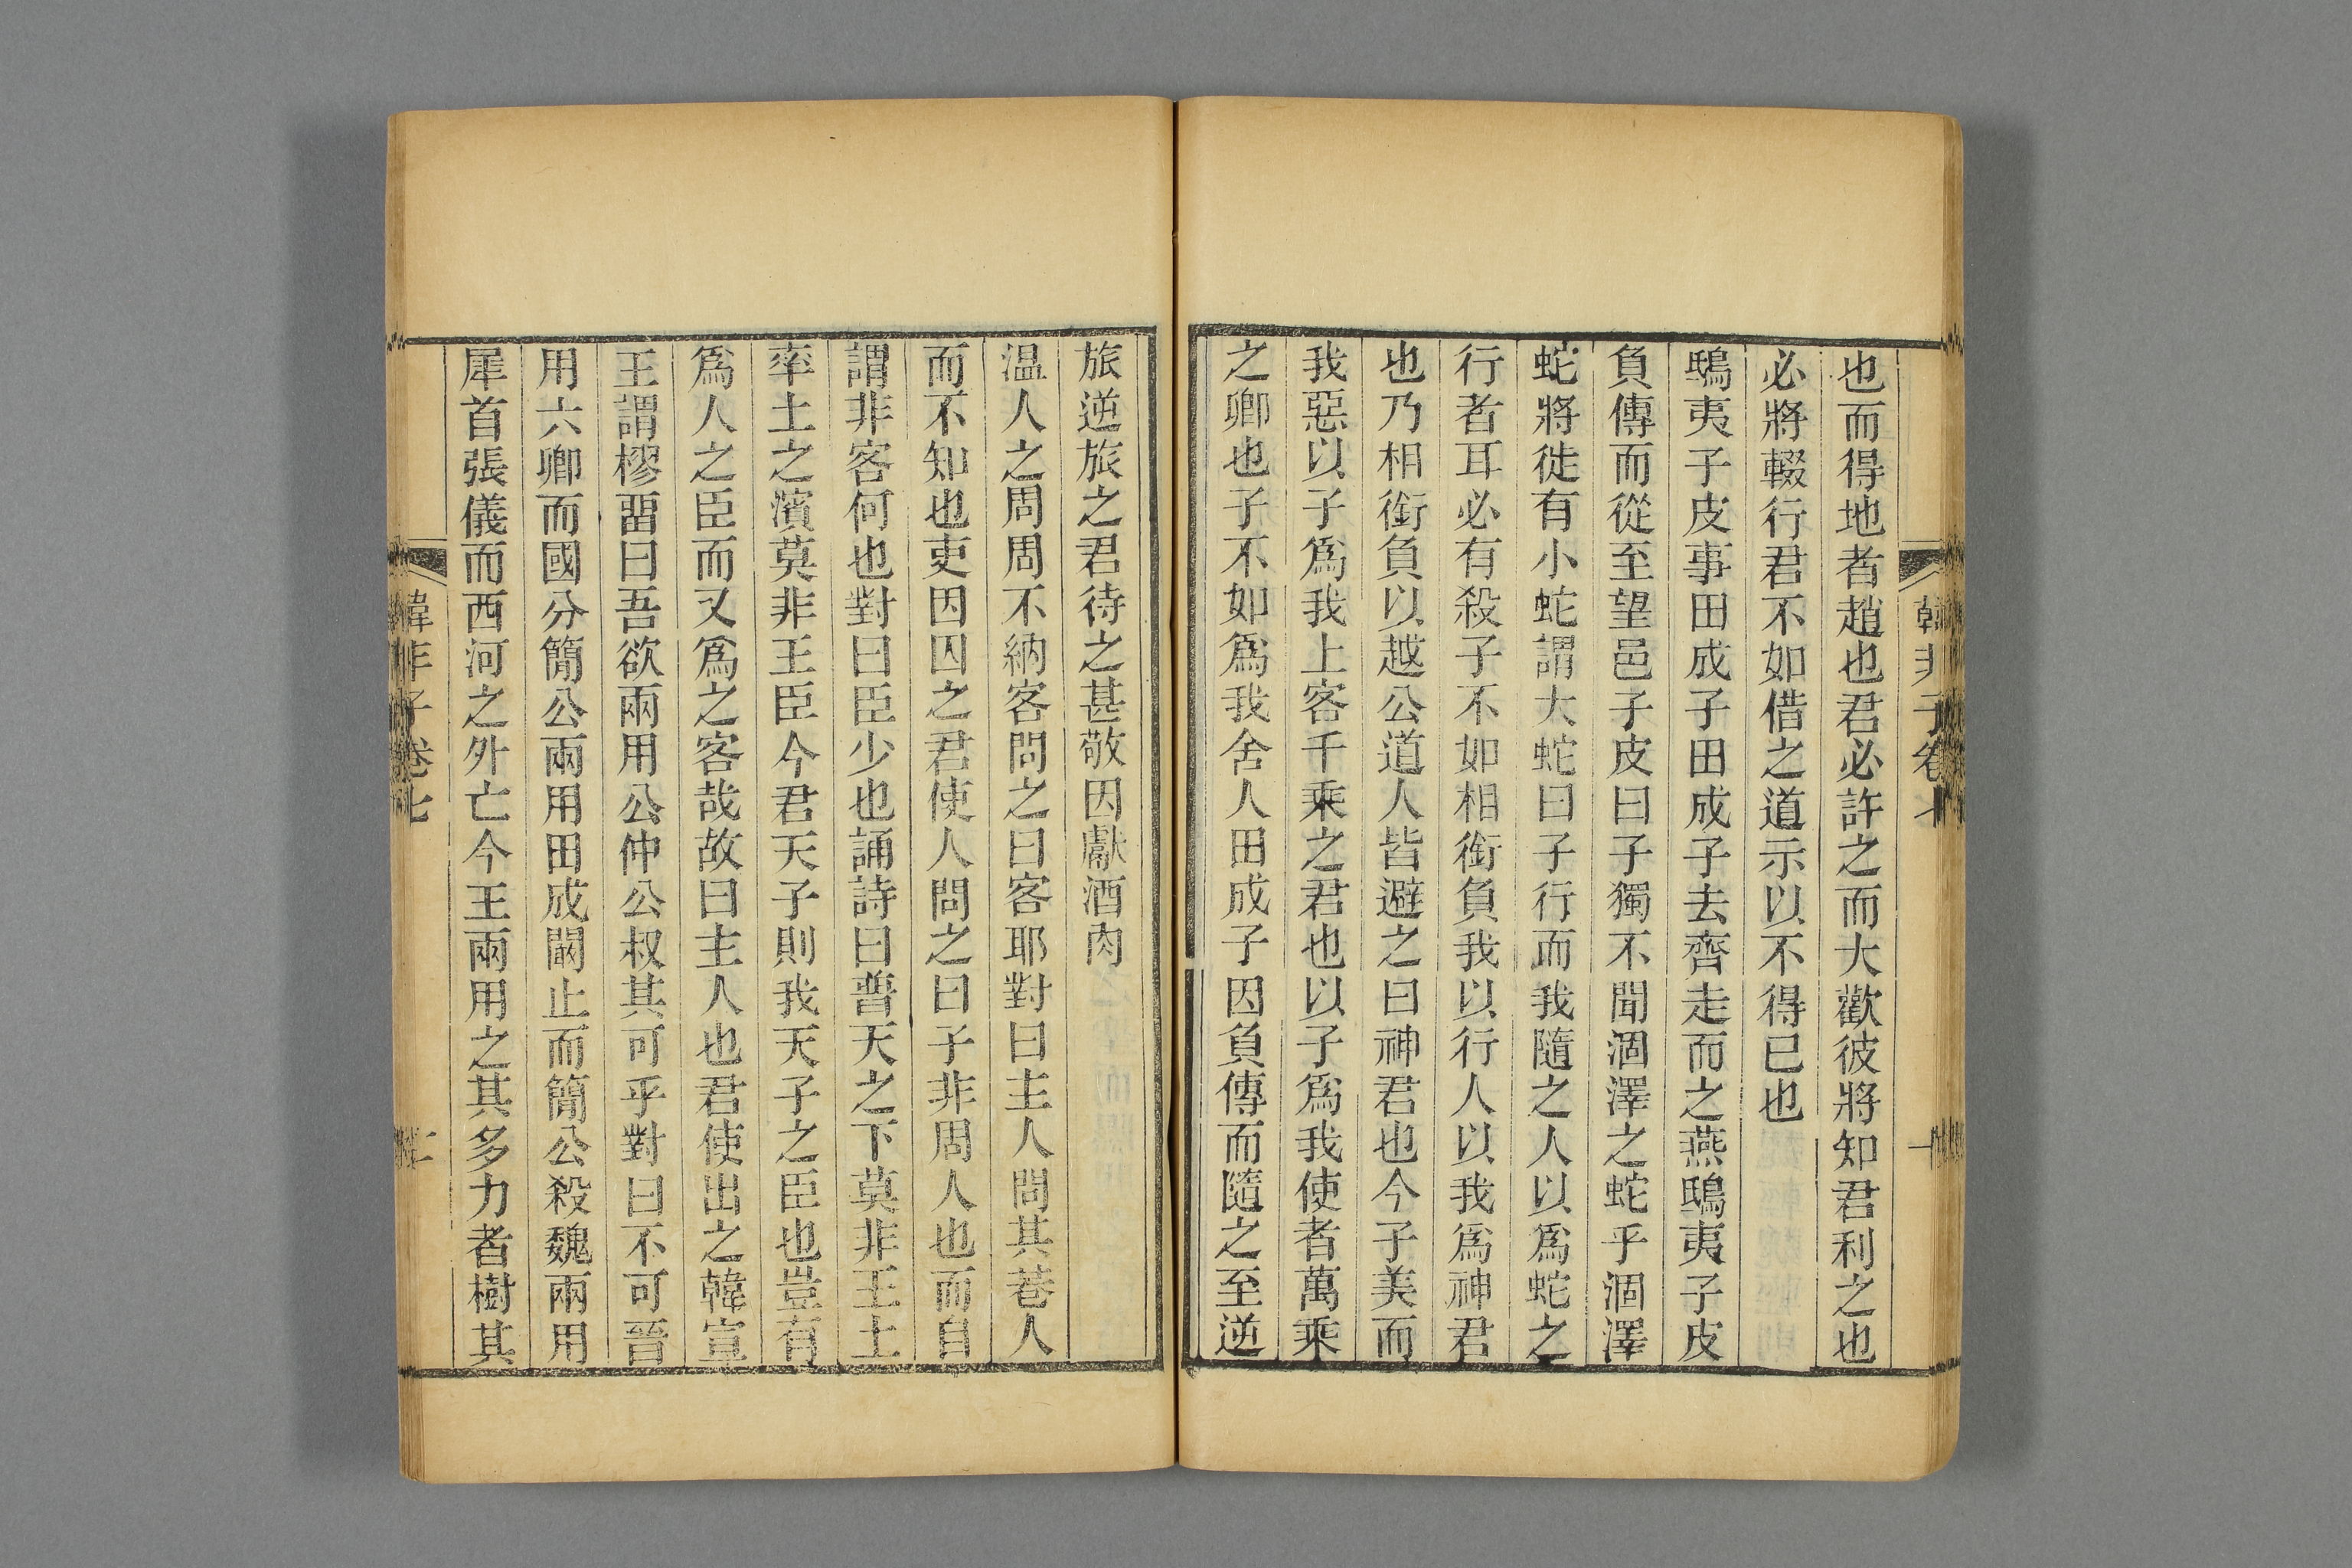 韓非子卷七
一
也而得地者趙也君必許之而大歡彼將知君利之也
必將輟行君不如借之道示以不得已也
鴟夷子皮事田成子田成子去齊走而之燕鴟夷子皮
負傳而從至望邑子皮曰子獨不聞涸澤之蛇乎涸澤
蛇將徙有小蛇謂大蛇曰子行而我隨之人以爲蛇之
行者耳必有殺子不如相銜負我以行人以我爲神君
也乃相銜負以越公道人皆避之曰神君也今子美而
我惡以子爲我上客千乘之君也以子爲我使者萬乘
之卿也子不如爲我舍人田成子因負傳而隨之至逆
旅逆旅之君待之甚敬因獻酒肉
温人之周周不納客問之曰客耶對曰主人問其巷人
而不知也吏因囚之君使人問之曰子非周人也而自
謂非客何也對曰臣少也誦詩曰普天之下莫非王土
率土之濱莫非王臣今君天子則我天子之臣也豈有
爲人之臣而又爲之客哉故曰主人也君使出之韓宣
王謂樛留曰吾欲兩用公仲公叔其可乎對曰不可晉
用六卿而國分簡公兩用田成闞止而簡公殺魏兩用
犀首張儀而西河之外亡今王兩用之其多力者樹其
韓非子卷七